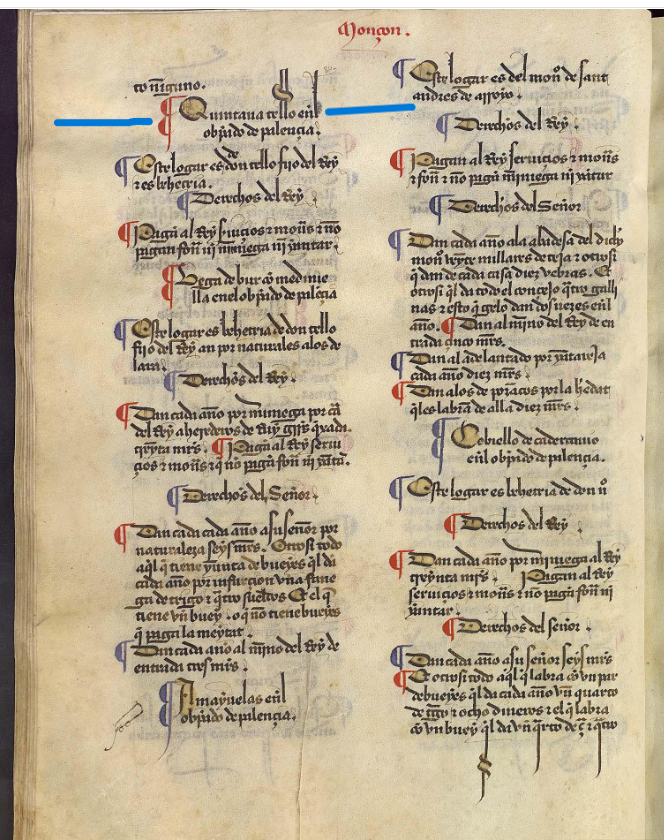 Monçon.
to niguno.
Quintana tello enl
obpado de palençia.
Este logar es de don tello fijo del Rey
⁊ es behetria.
Derechos del Rey
Pagan al Rey seruiçios ⁊ mons ⁊ no
pagan fonsa ni miniega ni yantar.
Vega de bur com medinie
lla en el obpado de palençia
Este logar es behetria de don tello
fijo del Rey an por naturales a los de
lara.
Derechos del Rey.
Dan cada año por miniega por carta
del Rey a herederos de Ruy qijada
treynta mrs. Pagan al Rey serui
çios ⁊ mons ⁊ q no pagan fonsa ni yanta.
Derechos del Señor.
Dan cada cada año a su señor por
naturaleza seys mrs. Otrosi todo
aql q tiene yunta de bueyes ql da
cada año por infurçion vna fane
ga de trigo ⁊ qtro sueldos Et el q
tiene vn buey. o q no tiene bueyes
q paga la meytat.
Dan cada año al mino del Rey de
entrada tres mrs.
Amayuelas enl
obpado de palençia.
Este logar es del mon de sant
andres de arroyo.
Derechos del Rey.
Pagan al Rey seruiçios ⁊ mons
⁊ fonsa ⁊ no pagan miniega ni yantar
Derechos del Señor
Dan cada año ala abadesa del dicho
mon treyze millares de teja ⁊ otrosi
q dan de cada casa diez vebras. Et
otrosi ql da todo el conçejo qtro galli
nas ⁊ esto q gelo dan dos uezes enl
año. Dan al mino del Rey de en
trada çinco mrs.
Dan al adelantado por yantareja
cada año diez mrs.
Dan a los de por la hedat
q les labra de alla diez mrs.
Cobiello de çaderamio
enl obpado de palençia.
Este logar es behetria de don n
Derechos del Rey.
Dan cada año por miniega al Rey
treynta mrs. Pagan al Rey
seruiçios ⁊ mons ⁊ no pagan fonsa ni
yantar.
Derechos del señor.
Dan cada año a su señor seys mrs
Et otrosi todo aql q labra con vn par
de bueyes ql da cada año vn quarto
de trigo ⁊ ocho dineros ⁊ el q labra
con vn buey ql da vn qrto de ⁊ qtro